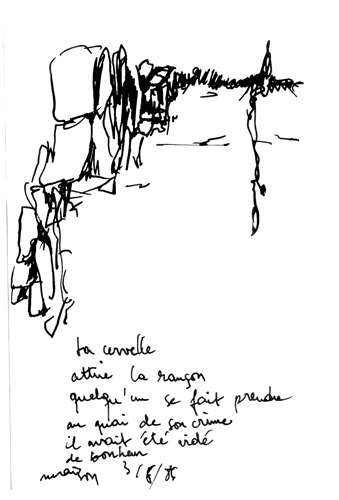 ta cervelle
attire la rançon
quelqu'un se fait prendre
au quai de son crime
il avait été vidé
de bonheur
3/6/85